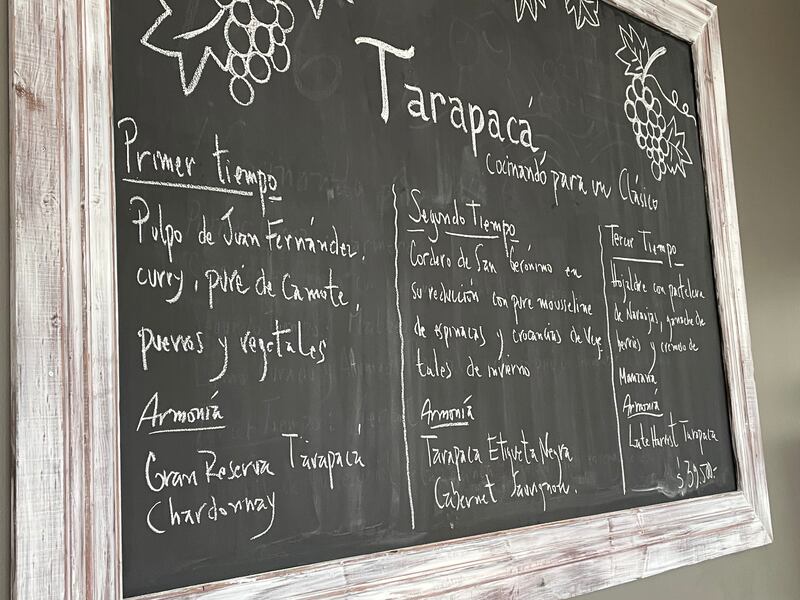 Tarapacá
Cocinando para un Clásico
Primer tiempo
Pulpo de Juan Fernández,
curry, puré de Camote,
puerros y vegetales
Armonía
Gran Reserva Tarapacá
Chardonnay
Segundo Tiempo
Cordero de San Gerónimo en
su reducción con pure mousseline
de espinacas y crocancias de Vege
tales de invierno
Armonía
Tarapaca Etiqueta Negra
Cabernet Sauvignon.
Tercer Tiempo
Hojaldre con pastelera
de Naranjas, ganache de
berries y cremoso de
Manzana
Armonía
Late Harvest Tarapaca
$39,500.-